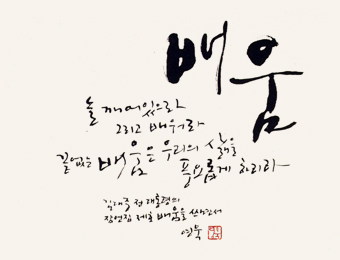 배움
늘 깨어있으라
그리고 배워라
끝없는 배움은 우리의 삶을
풍요롭게 하리라
김대중 전 대통령의
잠언집 제호 배움을 쓰면서